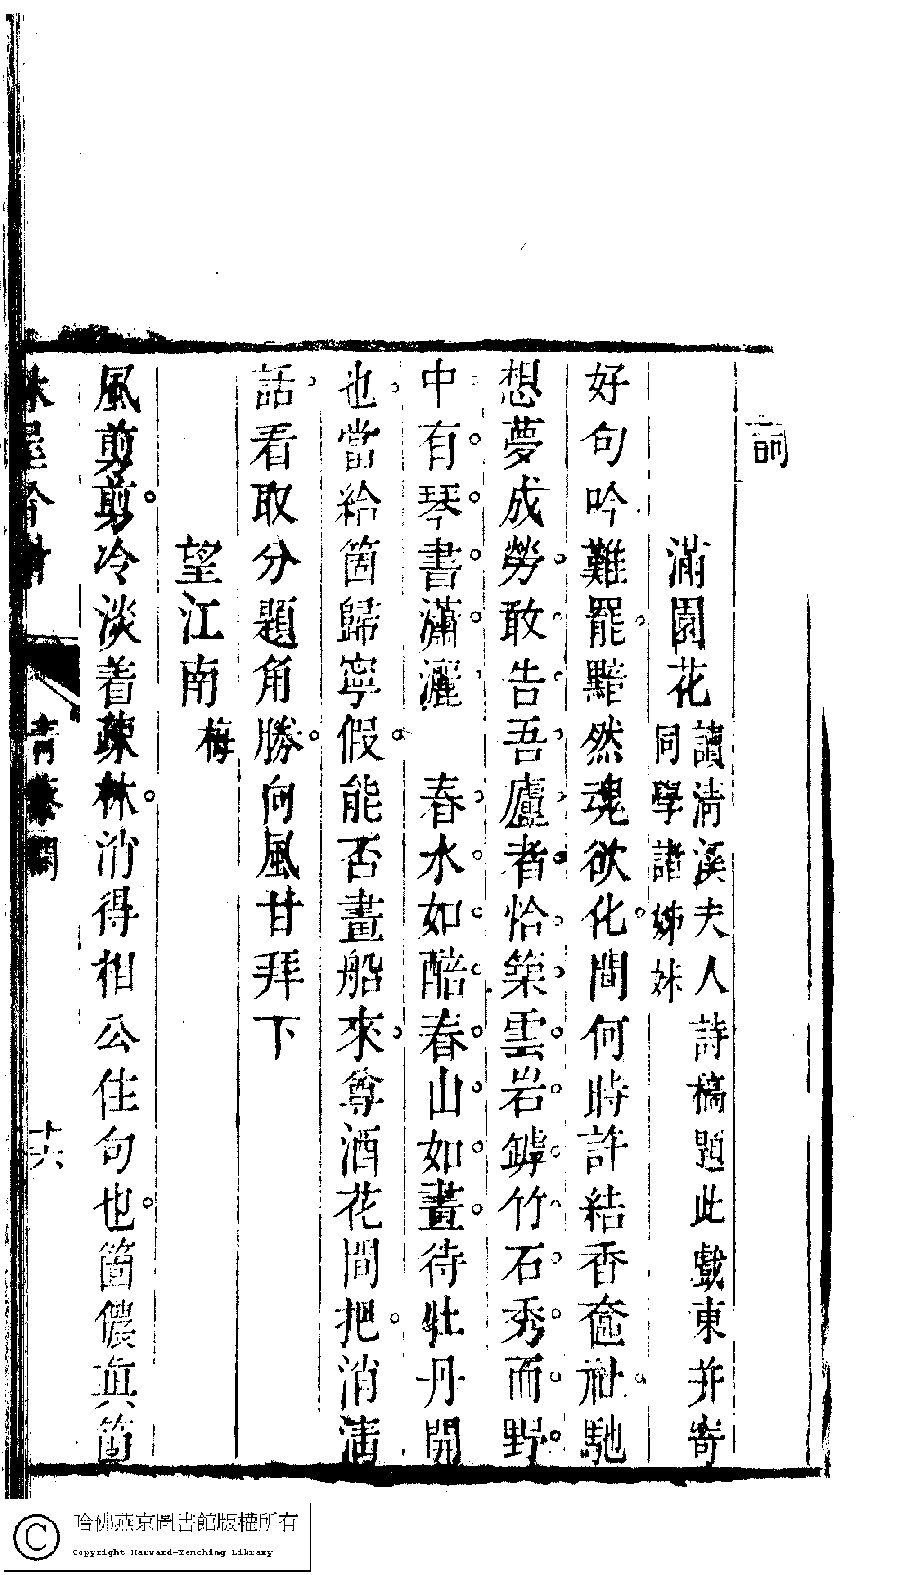 詞
滿園花 讀清溪夫人詩稿題此戲柬并寄
同學諸姊妹
好句吟難罷黯然魂欲化問何時許結香奩社馳
想夢成勞敢告吾廬者恰築雲岩罅竹石秀而野
中有琴書瀟灑 春水如醅春山如畫待牡丹開
也當給箇歸寧假能否畫船來尊酒花間把消淸
話看取分題角勝向風甘拜下
望江南 梅
風剪剪冷淡着疎林消得相公住句也箇儂眞箇
十六
哈佛燕京圖書館版權所有
Copyright Harvard-Yenching Library